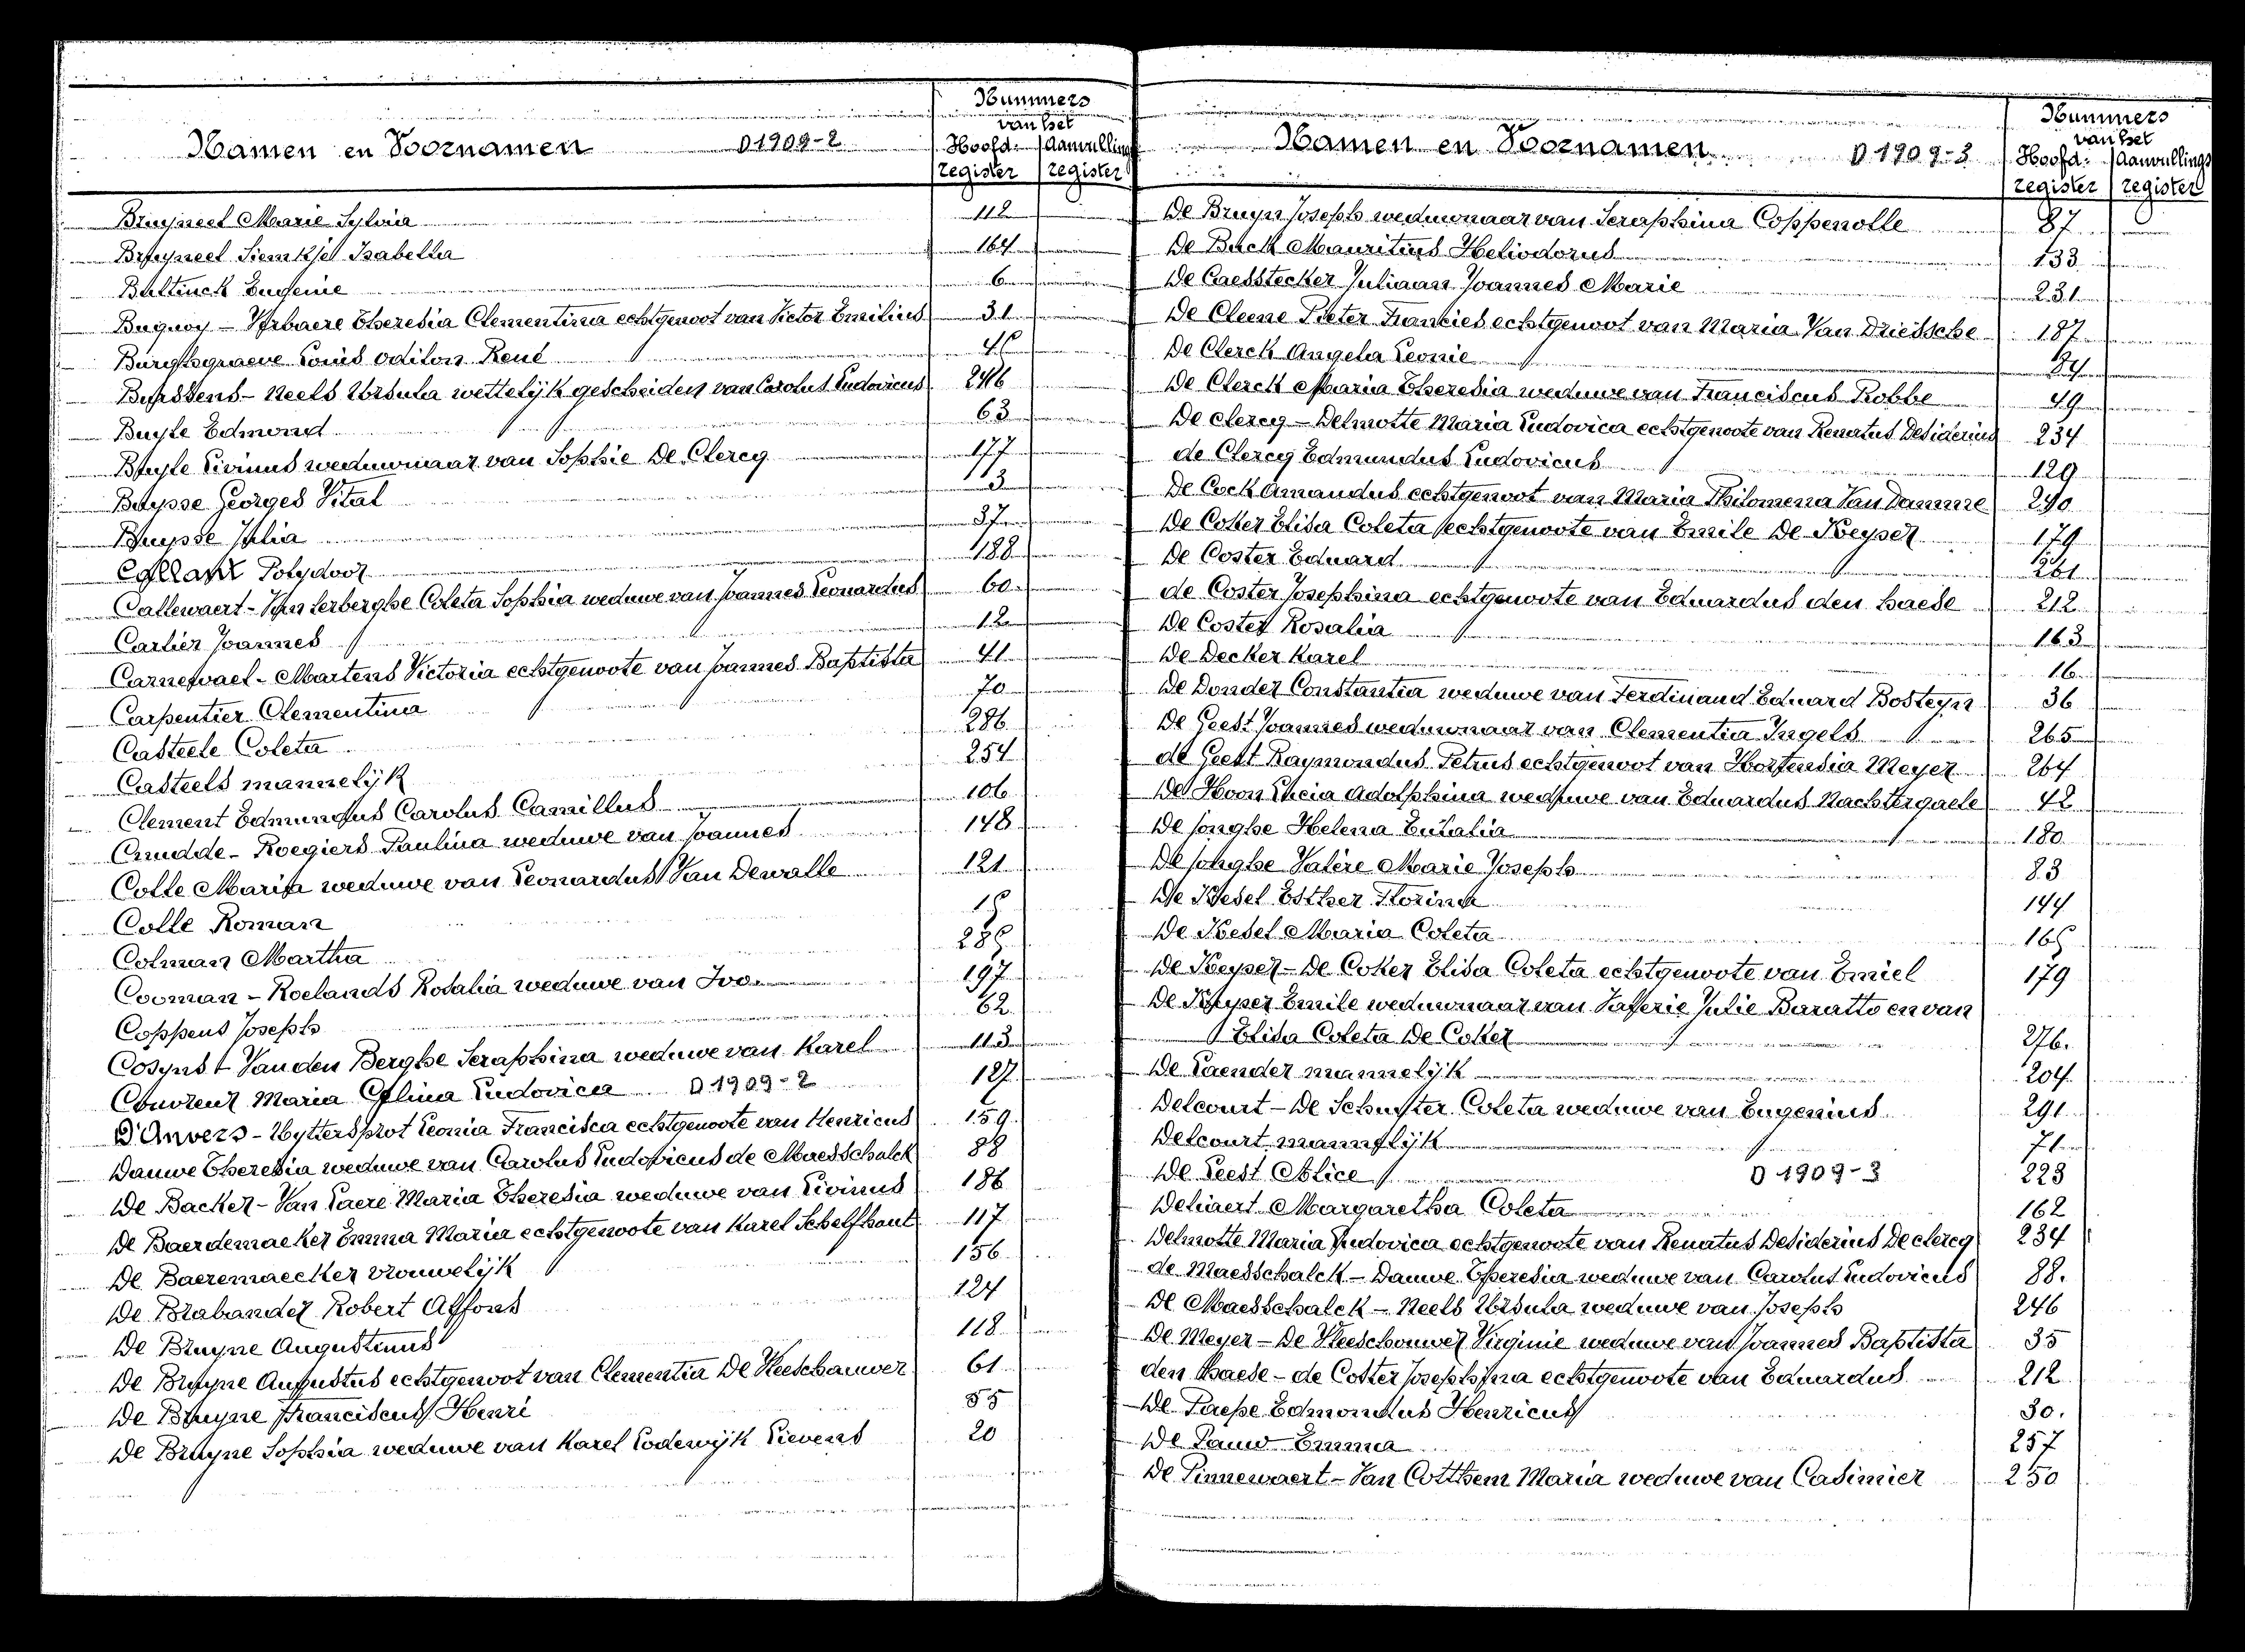 Namen en Voornamen D 1909-2
Nummers van het
Hoofd- register
Aanvullings register
Bruyneel Marie Sylvia 112
Bruyneel Isabella 164
Bultinck Eugenie 6
Buquoy - Verbaere Theresia Clementina echtgenoot van Victor Emilius 31
Burggraeve Louis Odilon René
Buyssens - Neels Ursula wettelijk gescheiden van Carolus Ludovicus 246
Buyle Edmond 63
Buyle Livinus weduwnaar van Sophie De Clercq 177
Buysse Georges Vital 113
Buysse Julia 37
Callant Polydoor 188
Callewaert - Van Lerberghe Coleta Sophia weduwe van Joannes Leonardus 60
Carlier Joannes 12
Carnewael - Martens Victoria echtgenoote van Joannes Baptista 41
Carpentier Clementina 70
Casteele Coleta 286
Casteels mannelijk 254
Clement Edmundus Carolus Camillus 106
Cnudde - Roegiers Paulina weduwe van Joannes 148
Colle Maria weduwe van Leonardus Van Dewalle 121
Colle Roman 15
Colman Martha 285
Cooman - Roelands Rosalia weduwe van Ivo 197
Coppens Joseph 62
Cosyns - Van den Berghe Seraphina weduwe van Karel 113
Couvreur Maria Celina Ludovica D 1909-2 127
D'Anvers - Uyttersprot Leonia Francisca echtgenoote van Henricus 159
Dauwe Theresia weduwe van Carolus Ludovicus de Maesschalck 88
De Backer - Van Laere Maria Theresia weduwe van Livinus 186
De Baerdemaeker Emma Maria echtgenoote van Karel Schelfhout 117
De Baeremaecker vrouwelijk 156
De Brabander Robert Alfons 124
De Bruyne Augustinus 118
De Bruyne Augustus echtgenoot van Clementia De Vleeschauwer 61
De Bruyne Franciscus Henri 85
De Bruyne Sophia weduwe van Karel Lodewijk Lievens 20
Namen en Voornamen D 1909-3
Nummers van het
Hoofd- register
Aanvullings register
De Bruyn Joseph weduwnaar van Seraphina Coppenolle 87
De Buck Mauritius Heliodorus 133
De Caesstecker Juliaan Joannes Marie 231
De Cleene Pieter Francies echtgenoot van Maria Van Driessche 187
De Clerck Angela Leonie 84
De Clerck Maria Theresia weduwe van Franciscus Robbe 49
De Clercq - Delmotte Maria Ludovica echtgenoote van Renatus Desiderius 234
de Clercq Edmundus Ludovicus 129
De Cock Amandus echtgenoot van Maria Philomena Van Damme 290
De Coker Elisa Coleta echtgenoote van Emile De Keyser 179
De Coster Eduard 261
de Coster Josephina echtgenoote van Eduardus den Haese 212
De Coster Rosalia 163
De Decker Karel 16
De Donder Constantia weduwe van Ferdinand Eduard Bosteyn 36
De Geest Joannes weduwnaar van Clementia Ingels 265
de Geest Raymondus Petrus echtgenoot van Hortensia Meyer 264
De Hoon Adolphina weduwe van Eduardus Nachtergaele 42
De Jonghe Helena Eulalia 180
De Jonghe Valère Marie Joseph 83
De Kesel Esther Florina 144
De Kesel Maria Coleta 165
De Keyser - De Coker Elisa Coleta echtgenoote van Emiel 179
De Keyser Emile weduwnaar van Valerie Julie Baratto en van
Elisa Coleta De Coker 276.
De Laender mannelijk 204
Delcourt - De Schuyter Coleta weduwe van Eugenius 291
Delcourt mannelijk 71
De Leest Alice D 1909-3 223
Deliaert Margaretha Coleta 162
Delmotte Maria Ludovica echtgenoote van Renatus Desiderius De Clercq 234
de Maesschalck - Dauwe Theresia weduwe van Carolus Ludovicus 88.
De Maesschalck - Neels Ursula weduwe van Joseph 246
De Meyer - De Vleeschouwer Virginie weduwe van Joannes Baptista 35
den Haese - de Coster Josephina echtgenoote van Eduardus 212
De Paepe Edmondus Henricus 30.
De Pauw Emma 257
De Pinnewaert - Van Cotthem Maria weduwe van Casimier 250